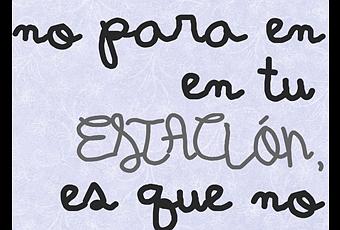 no para en
en tu
ESTACIÓN,
es que no